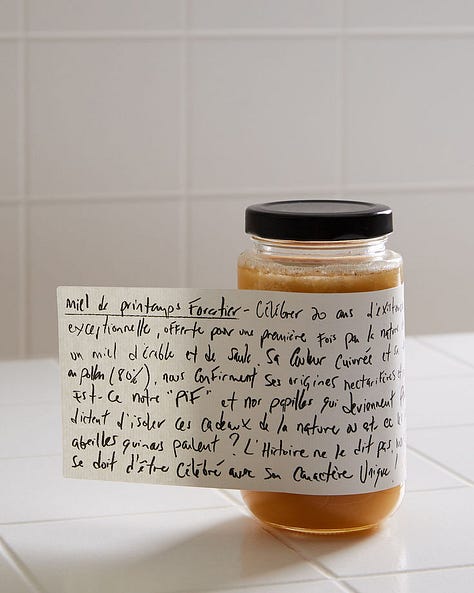 Miel de printemps Forestier - Célébrer 20 ans d'existan
exceptionnelle, offerte pour une première fois par la nature
un miel d'érable et de Saule. Sa Couleur Cuivrée et sa
en pollen (80%), nous Confirment Ses origines nectarifères et
Est-Ce notre "PIF" et nos papilles qui deviennent
dictent d'isoler ces Cadeaux de la nature ou est-ce
abeilles qui nous parlent ? L'Histoire ne le dit pas,
se doit d'être Célébré avec Son Caractère Unique !